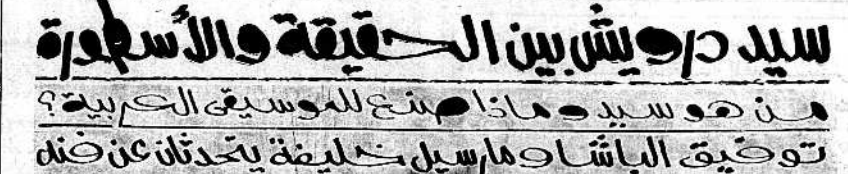 سيد درويش بين الحقيقة والأسطورة
من هو سيد وماذا صنع للموسيقى العربية؟
توفيق الباشا ومارسيل خليفة يتحدثان عن فنه